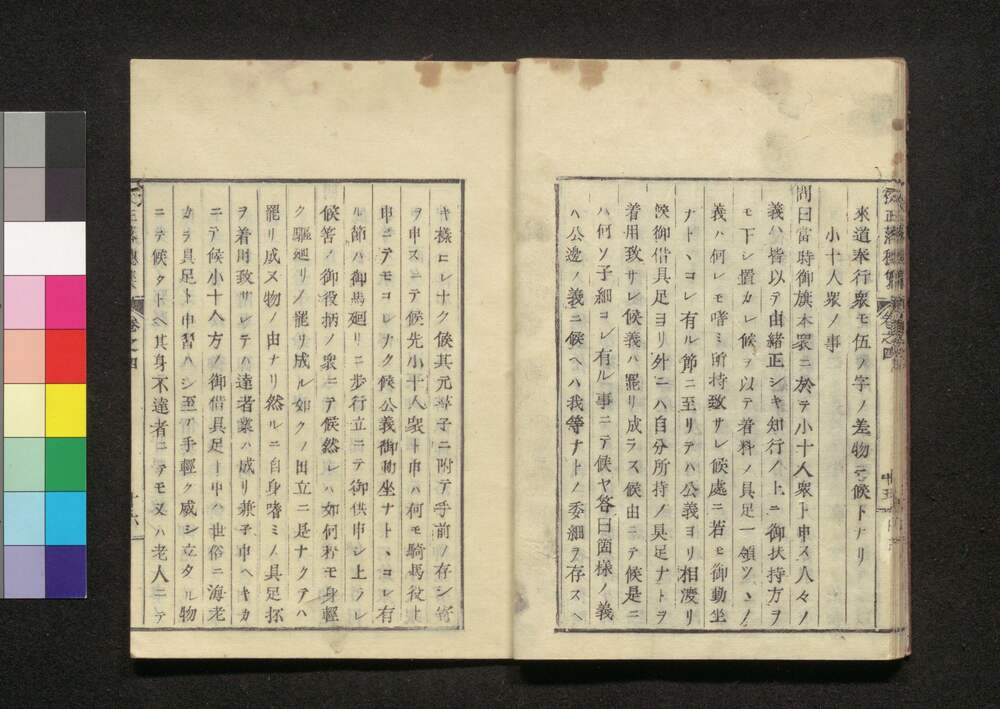 來道奉行衆モ伍ノ字ノ差物ニ候トナリ
小十人衆ノ事
問曰當時御旗本衆ニ於テ小十人衆ト申ス人々ノ
義ハ皆以テ由緒正シキ知行ノ上ニ御扶持方ヲ
モ下シ置カレ候ヲ以テ着料ノ具足一領ツヽノ
義ハ何レモ嗜ミ所持致サレ候處ニ若モ御動坐
ナトヽコレ有ル節ニ至リテハ公義ヨリ相渡リ
候御借具足ヨリ外ニハ自分所持ノ具足ナトヲ
着用致サレ候義ハ罷リ成ラス候由ニテ候是ニ
ハ何ソ子細コレ有ル事ニテ候ヤ答曰箇樣ノ義
ハ公邊ノ義ニ候ヘハ我等ナトノ委細ヲ存スヘ
キ樣コレナク候其元草子ニ附テ手前ノ存シ寄
ヲ申スニテ候先小十人衆ト申ハ何モ騎馬役ト
申ニテモコレナク候公義御動坐ナトヽコレ有
ル節ハ御馬廻リニ步行立ニテ御供申シ上ラレ
候筈ノ御役柄ノ衆ニテ候然レハ如何程モ身輕
ク驅廻リノ罷リ成ル如クノ出立ニ是ナクテハ
罷リ成ヌ物ノ由ナリ然ルニ自身嗜ミノ具足抔
ヲ着用致サレテハ達者業ハ成リ兼子申ヘキカ
ニテ候小十人方ノ御借具足ト申ハ世俗ニ海老
カラ具足ト申習ハシ至テ手輕ク威シ立タル物
ニテ候タトヘ其身不達者ニテモ又ハ老人ニテ
卷之四